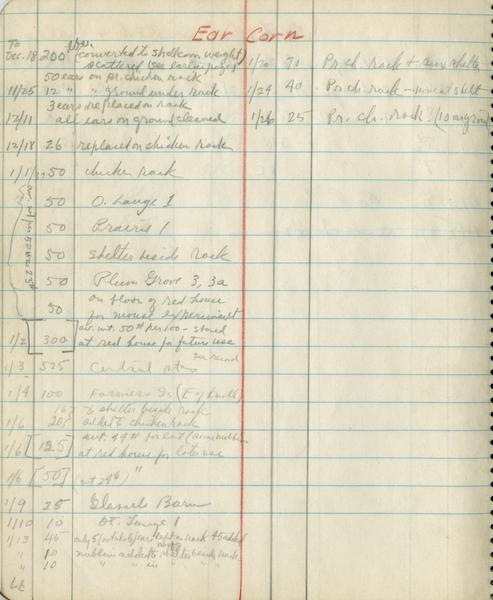 Ear Corn
To
Dec. 18 200 lbs. (converted to shelkorn weight)
scattered (see earlier pages)
50 ears on pr. chicken rack
11/25 12 " " ground under rack
3 ears replaced on rack
12/11 all ears on ground cleaned
12/18 26 replaced on chicken rack
1/1 50 chicken rack
50 O. Lange I
50 Prairie I
50 shelter beside rack
50 Plum Grove 3, 3a
50 on floor of red house
for mouse experiment
1/2 [300] av. wt. 50# per 100 - stored
at red house for future use
see record
1/3 525 Central
1/4 100 Farmers (E of knoll)
to shelter beside rack
1/6 20 added to chicken rack
1/6 [125] 44# for lot
at red house for later use
1/6 [50] "
1/9 25 Barn
1/10 10 I
1/13 45 only 5 on rack + added
" 10 nubbins added to shelter beside rack
" 10 " " " " "
1/20 70 Pr. ch. rack + shelter
1/24 40 Pr. ch. rack - shelt
1/26 25 Pr. ch. rock (10 on ground)